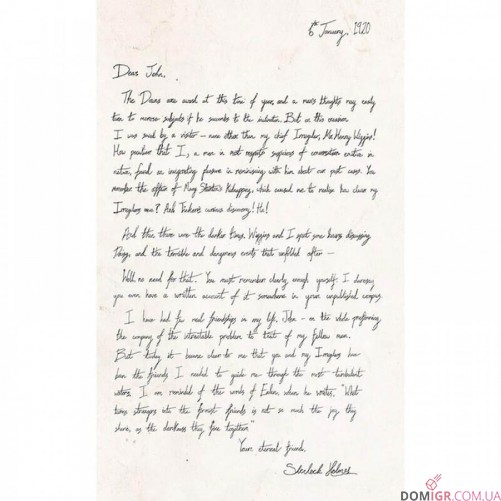 6th January, 1920
Dear John,
The Downs are awash at this time of year, and a man's thoughts may easily
turn to morose subjects if he succumbs to the isolation. But on this occasion
I was saved by a visitor — none other than my chief Irregular, Mr Henry Wiggins!
How peculiar that I, a man in most regards suspicious of conversation entire in
nature, found so invigorating pleasure in reminiscing with him about our past cases. You
remember the affair of kidnapping, which caused me to realise how clever my
Irregulars were? And curious discovery! Ha!
And then there were the darker things. Wiggins and I spent some hours discussing
and the terrible and dangerous events that unfolded after —
Well, no need for that. You must remember clearly enough yourself. I daresay
you even have a written account of it somewhere in your unpublished corpus.
I have had few real friendships in my life, John — on the whole preferring
the company of the intractable problem to that of my fellow man.
But today it became clear to me that you and my Irregulars have
been the friends I needed to guide me through the most turbulent
waters. I am reminded of the words of when he writes, "What
turns strangers into the firmest friends is not so much the joy they
share, as the darkness they face together."
Your eternal friend,
Sherlock Holmes
DOMIGR.COM.UA